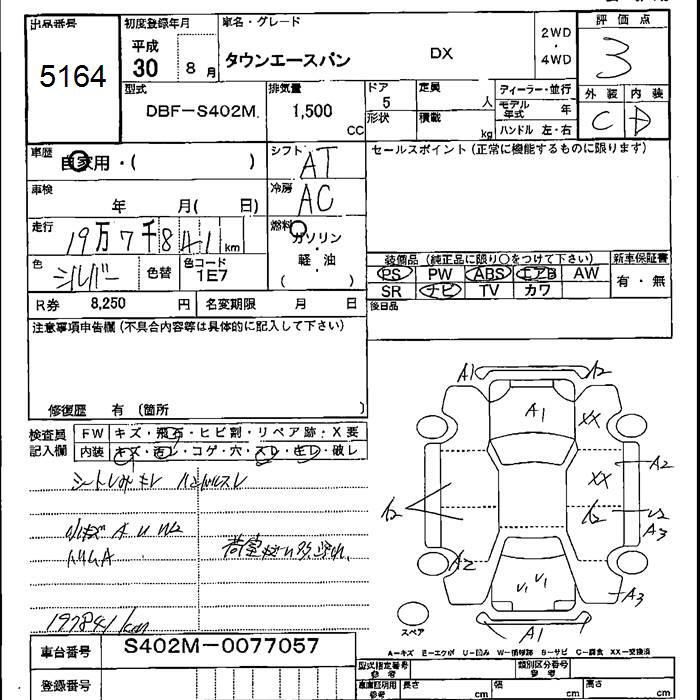 出品番号 初度登録年月 車名・グレード 2WD・4WD 評価点
5164 平成 30 8 月 タウンエースバン DX 3
型式 排気量 ドア 定員 ディーラー・並行 外装 内装
DBF-S402M 1,500 CC 5 人 モデル年式 年 C D
形状 積載 kg ハンドル 左・右
車歴 自家用・( ) シフト AT セールスポイント(正常に機能するものに限ります)
車検 年 月( 日) 冷房 AC
走行 19万7千841km 燃料 ガソリン・軽・油 ( )
色 シルバー 色替 色コード 1E7
装備品 (純正品に限り○をつけて下さい) 新車保証書
PS PW ABS エアB AW 有・無
SR ナビ TV カワ
R券 8,250 円 名変期限 月 日 後日品
注意事項申告欄(不具合内容等は具体的に記入して下さい)
修復歴 有 (箇所 )
検査員記入欄 FW キズ・飛石・ヒビ割・リペア跡・X要
内装 キズ・汚レ・コゲ・穴・スレ・キレ・破レ
シートしみキレ ハンドルスレ
小キズ A U W2
197841km
A1 A2
A1 XX
XX A2
A2 A2 U2
A3
A2 U1 U1 A3
A1
スペア
A-キズ E-エクボ U-凹み W-補修跡 S-サビ C-腐食 XX-交換済
車台番号 S402M-0077057
登録番号
型式指定番号 参考 類別区分番号 参考
車庫証明用 参考 長さ cm 幅 cm 高さ cm